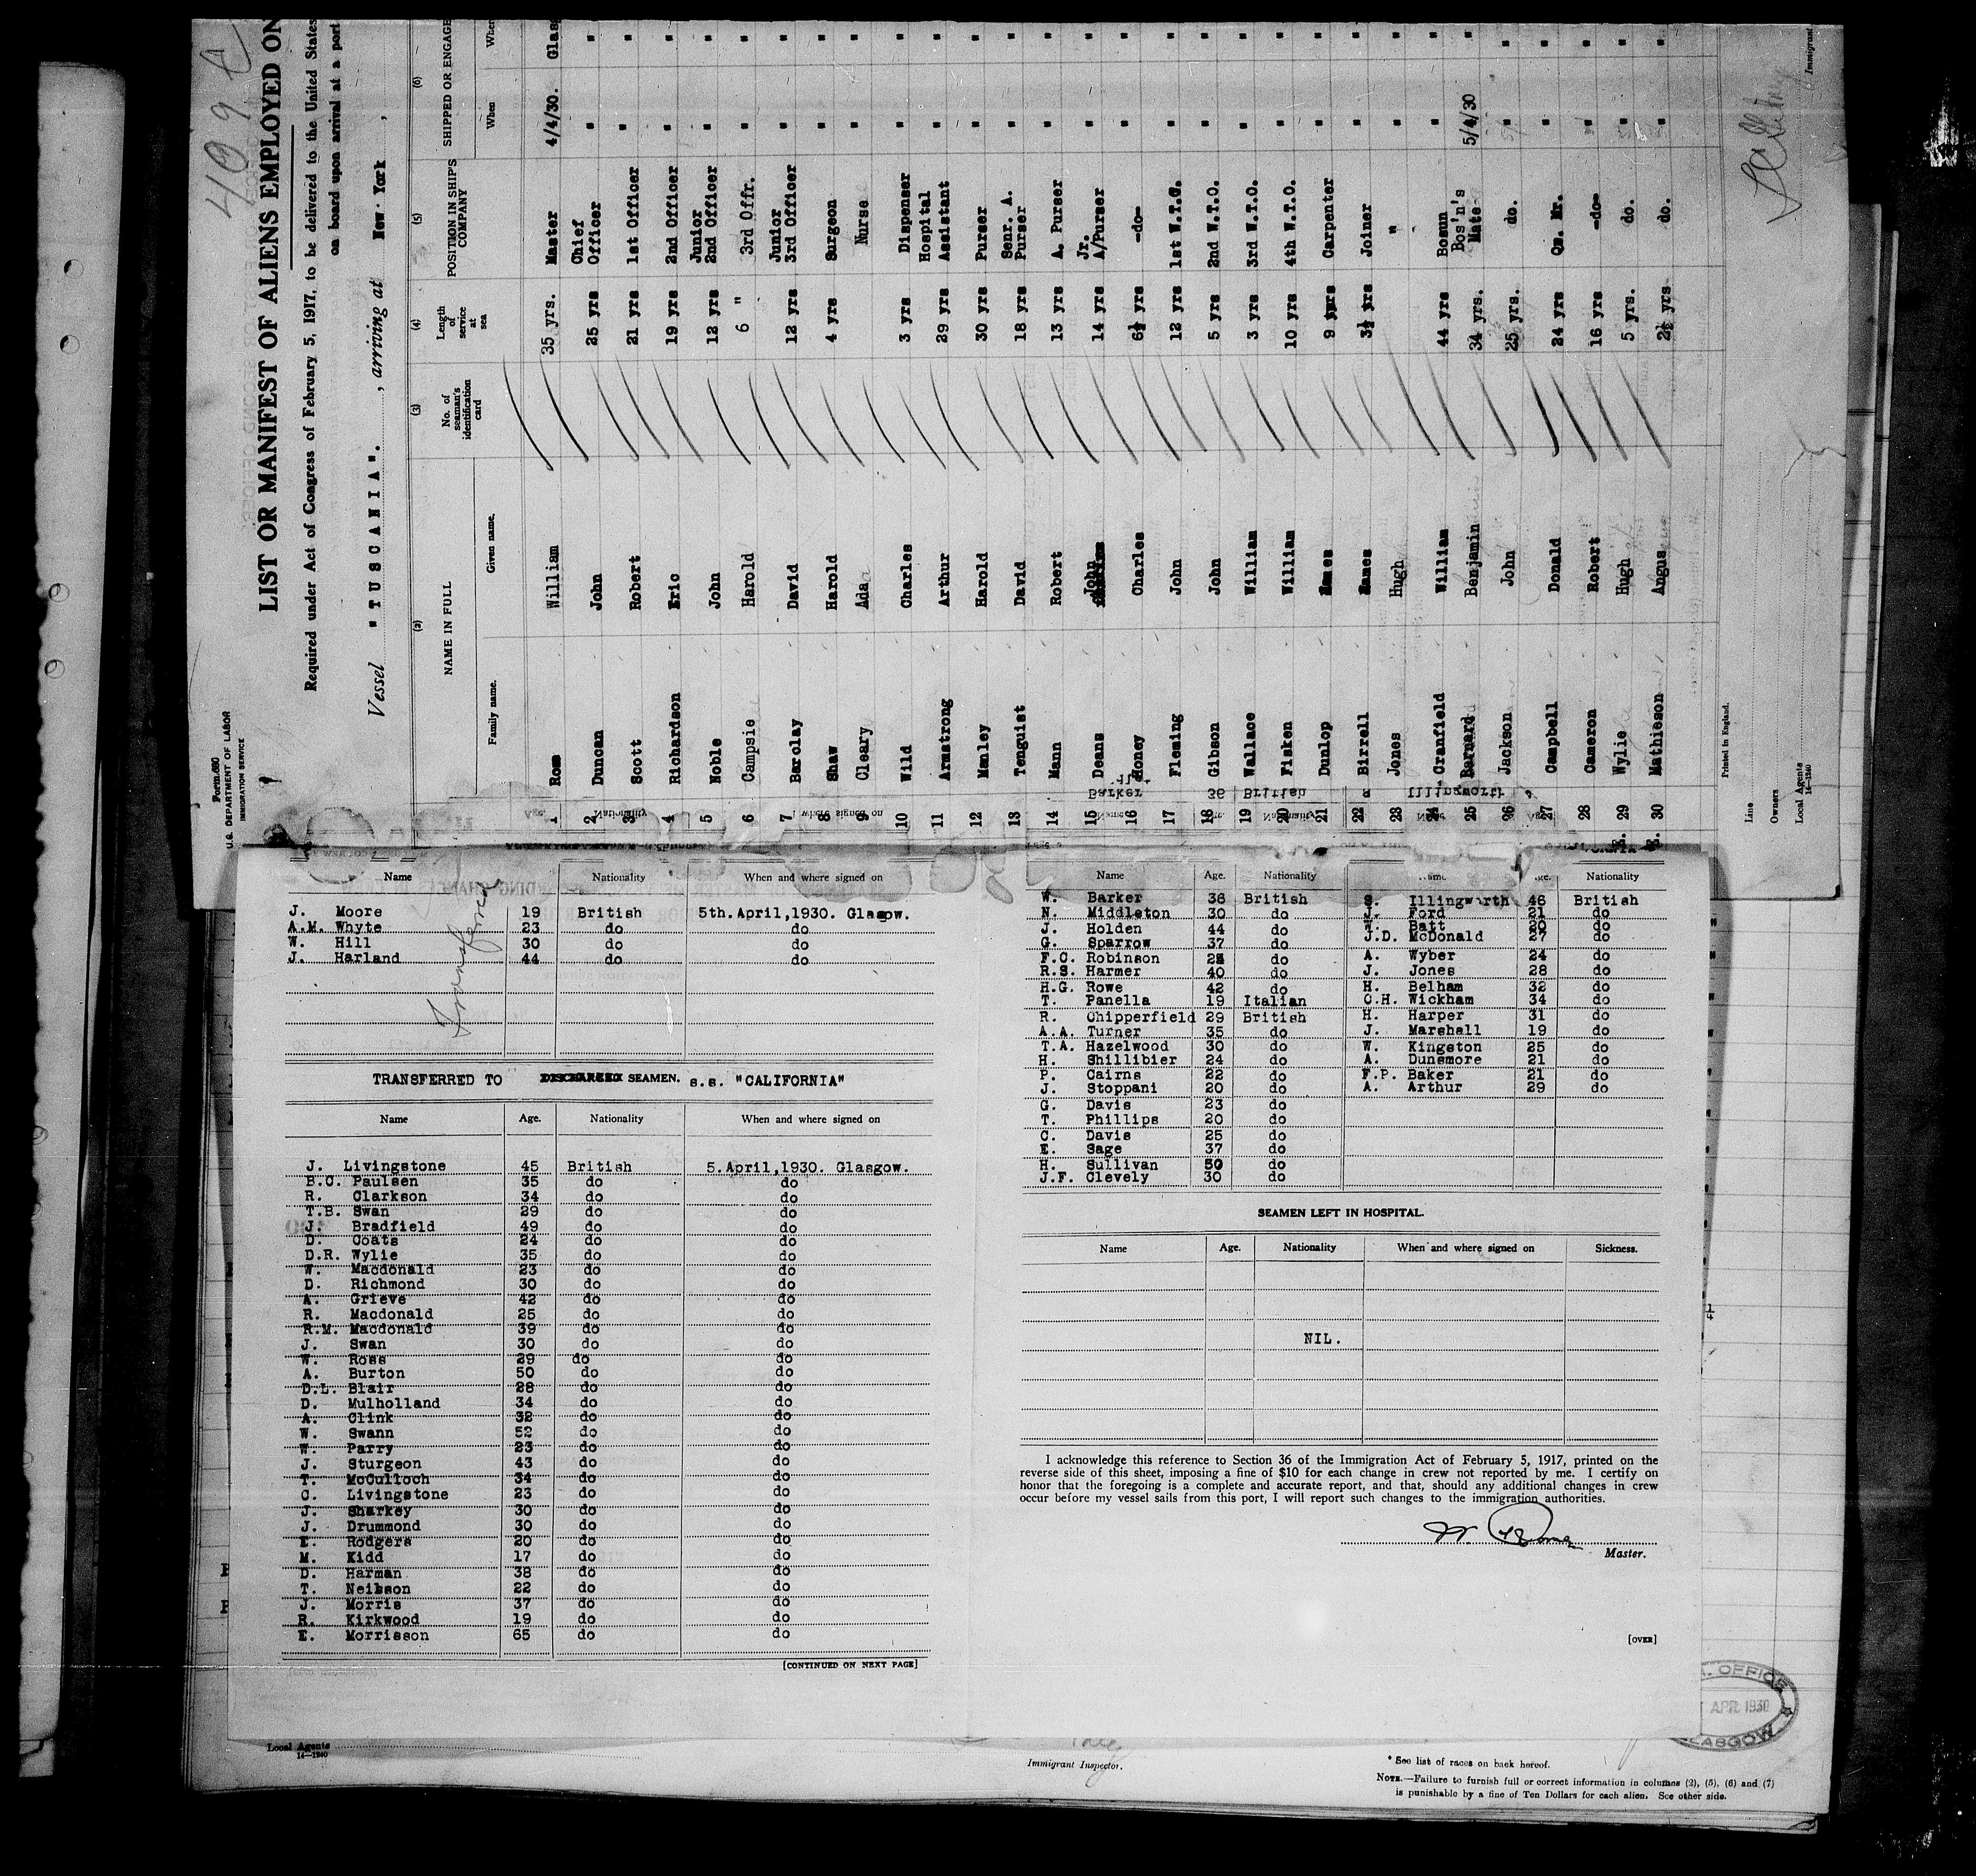 409
Form 680
U.S. DEPARTMENT OF LABOR
IMMIGRATION SERVICE
LIST OR MANIFEST OF ALIENS EMPLOYED ON
Required under Act of Congress of February 5, 1917, to be delivered to the United States
on board upon arrival at a port
Vessel "TUSCANIA". , arriving at New York ,
(2) (3) (4) (5) (6)
NAME IN FULL No. of seaman's identification card Length of service at sea POSITION IN SHIP'S COMPANY SHIPPED OR ENGAGE
Family name. Given name. When Whe
1 Ross William 35 yrs. Master 4/4/30. Glas
2 Duncan John 25 yrs Chief Officer " "
3 Scott Robert 21 yrs 1st Officer " "
4 Richardson Eric 19 yrs 2nd Officer " "
5 Noble John 12 yrs Junior 2nd Officer " "
6 Campsie Harold 6 " 3rd Offr. " "
7 Barclay David 12 yrs Junior 3rd Officer " "
8 Shaw Harold 4 yrs Surgeon " "
9 Cleary Ada Nurse " "
10 Wild Charles 3 yrs Dispenser " "
11 Armstrong Arthur 29 yrs Hospital Assistant " "
12 Manley Harold 30 yrs Purser " "
13 Tenguist David 18 yrs Senr. A. Purser " "
14 Mann Robert 13 yrs A. Purser " "
15 Deans John 14 yrs Jr. A/Purser " "
16 Honey Charles 6½ yrs -do- " "
17 Fleming John 12 yrs 1st W.T.O. " "
18 Gibson John 5 yrs 2nd W.T.O. " "
19 Wallace William 3 yrs 3rd W.T.O. " "
20 Fisken William 10 yrs 4th W.T.O. " "
21 Dunlop James 9 yrs Carpenter " "
22 Birrell James 3½ yrs Joiner " "
23 Jones Hugh " " "
24 Cranfield William 44 yrs Bosun " "
25 Barnard Benjamin 34 yrs. Bos'n's Mate 5/4/30 "
26 Jackson John 25 yrs. do. " "
27 Campbell Donald 24 yrs Qu. Mr. " "
28 Cameron Robert 16 yrs -do- " "
29 Wylie Hugh 5 yrs. do. " "
30 Mathieson Angus 2½ yrs. do. " "
Printed in England.
Line
Owners
Local Agents
14—1240
Immigrant
Name Nationality When and where signed on
J. Moore 19 British 5th.April,1930. Glasgow.
A.M. Whyte 23 do do
W. Hill 30 do do
J. Harland 44 do do
TRANSFERRED TO DISCHARGED SEAMEN. s.s. "CALIFORNIA"
Name Age. Nationality When and where signed on
J. Livingstone 45 British 5.April,1930. Glasgow.
B.C. Paulsen 35 do do
R. Clarkson 34 do do
T.B. Swan 29 do do
J. Bradfield 49 do do
D. Coats 24 do do
D.R. Wylie 35 do do
W. Macdonald 23 do do
D. Richmond 30 do do
A. Grieve 42 do do
R. Macdonald 25 do do
R.M. Macdonald 39 do do
J. Swan 30 do do
W. Ross 29 do do
A. Burton 50 do do
D.L. Blair 28 do do
D. Mulholland 34 do do
A. Clink 32 do do
W. Swann 52 do do
W. Parry 23 do do
J. Sturgeon 43 do do
T. McCulloch 34 do do
C. Livingstone 23 do do
J. Sharkey 30 do do
J. Drummond 30 do do
E. Rodgers 20 do do
M. Kidd 17 do do
D. Harman 38 do do
T. Neilson 22 do do
J. Morris 37 do do
R. Kirkwood 19 do do
E. Morrisson 65 do do
[CONTINUED ON NEXT PAGE]
Name Age. Nationality Nationality
W. Barker 36 British
N. Middleton 30 do
J. Holden 44 do
G. Sparrow 37 do
F.C. Robinson do
R.S. Harmer 40 do
H.G. Rowe 42 do
T. Panella 19 Italian
R. Chipperfield 29 British
A.A. Turner 35 do
T.A. Hazelwood 30 do
H. Shillibier 24 do
P. Cairns 22 do
J. Stoppani 20 do
G. Davis 23 do
T. Phillips 20 do
C. Davis 25 do
E. Sage 37 do
H. Sullivan 50 do
J.F. Clevely 30 do
Illingworth 46 British
Ford 21 do
Batt 20 do
J.D. McDonald 27 do
A. Wyber 24 do
J. Jones 28 do
H. Belham 32 do
C.H. Wickham 34 do
H. Harper 31 do
J. Marshall 19 do
W. Kingston 25 do
A. Dunsmore 21 do
F.P. Baker 21 do
A. Arthur 29 do
SEAMEN LEFT IN HOSPITAL.
Name Age. Nationality When and where signed on Sickness.
NIL.
I acknowledge this reference to Section 36 of the Immigration Act of February 5, 1917, printed on the
reverse side of this sheet, imposing a fine of $10 for each change in crew not reported by me. I certify on
honor that the foregoing is a complete and accurate report, and that, should any additional changes in crew
occur before my vessel sails from this port, I will report such changes to the immigration authorities.
Master.
[OVER]
APR 1930
GLASGOW
Local Agents
14—1240
Immigrant Inspector.
* See list of races on back hereof.
NOTE.—Failure to furnish full or correct information in columns (2), (5), (6) and (7)
is punishable by a fine of Ten Dollars for each alien. See other side.